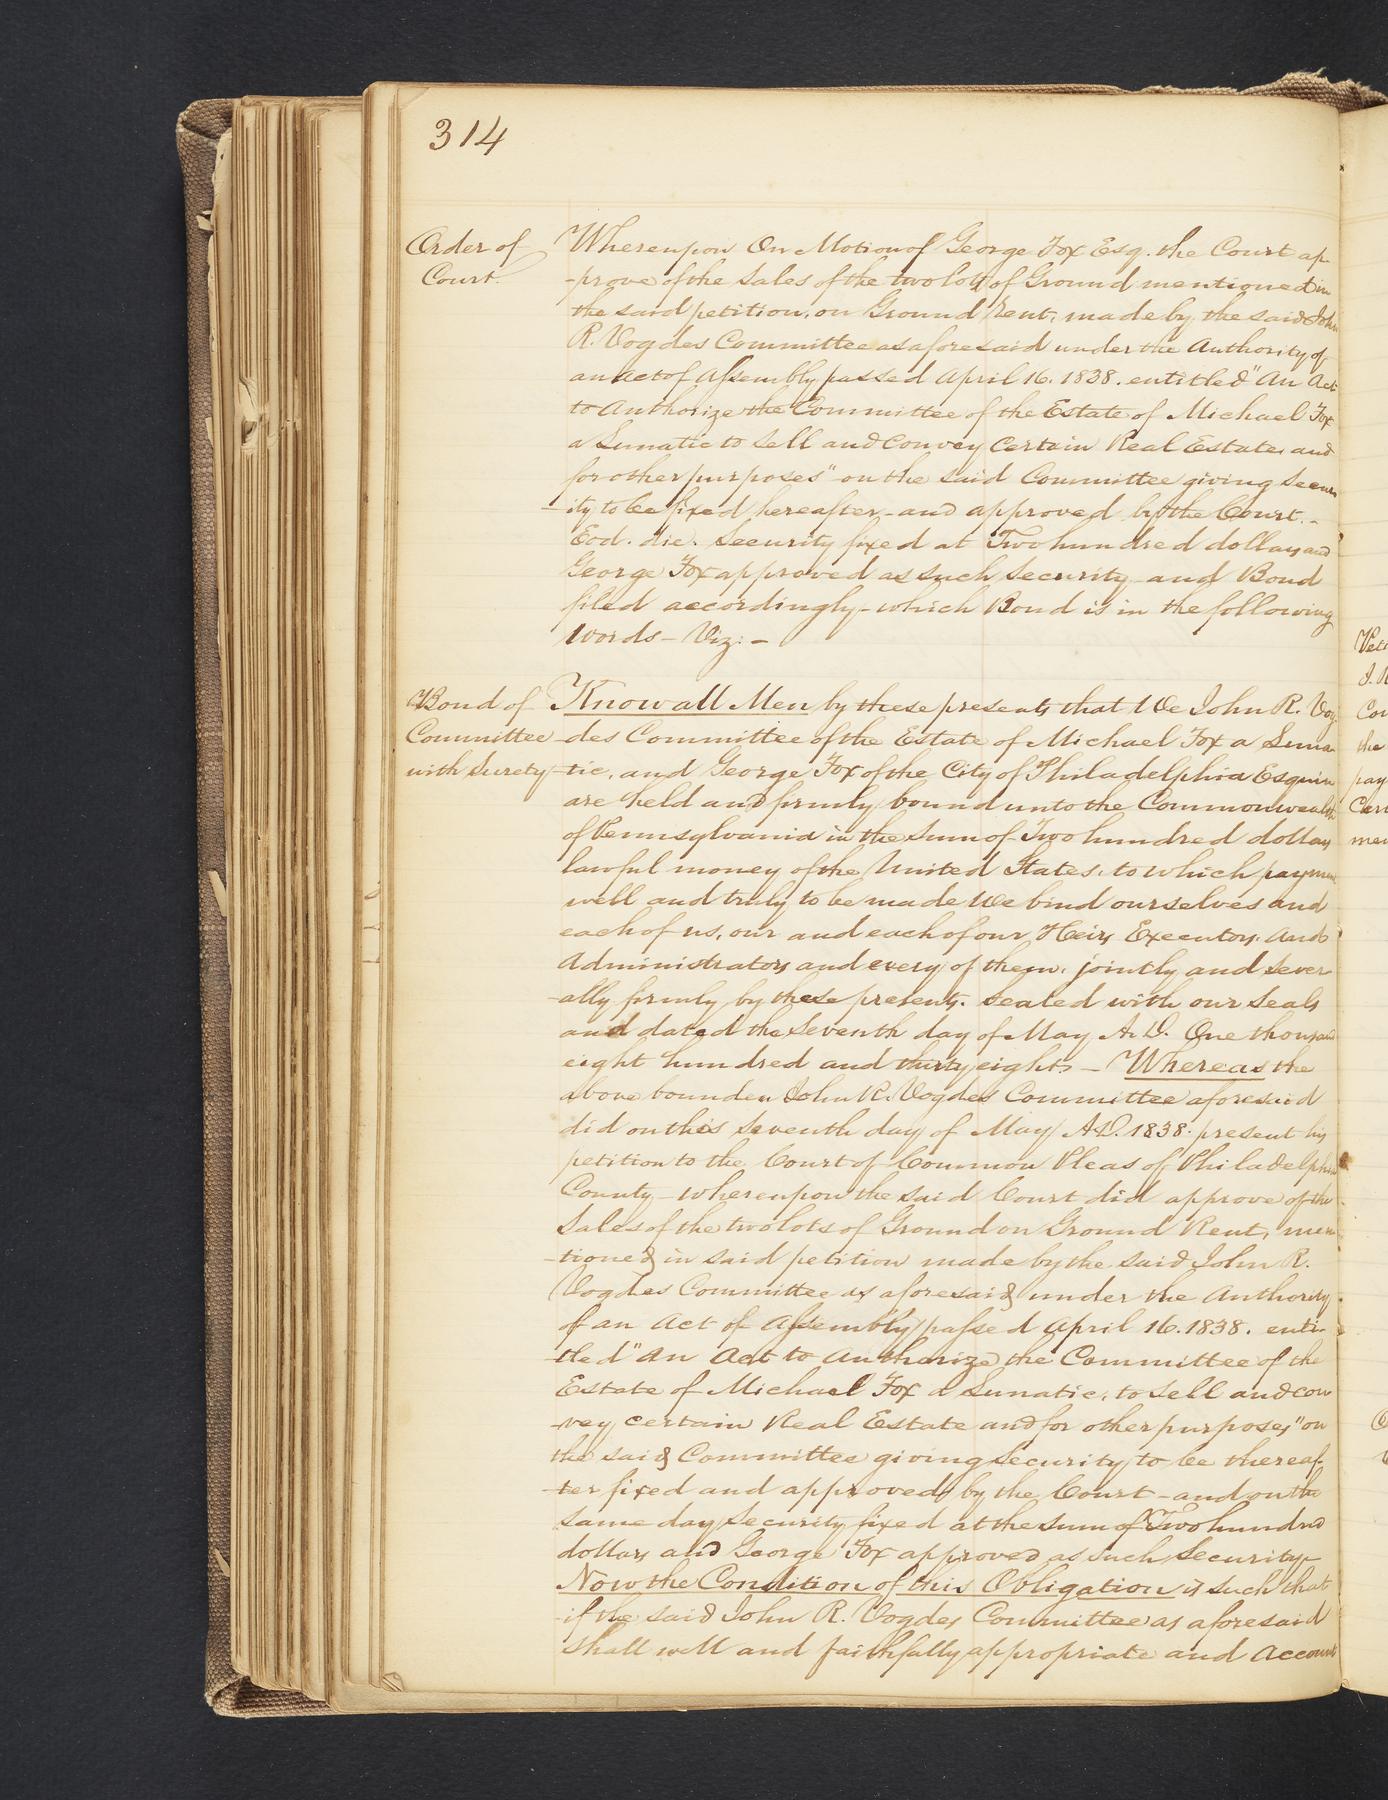 314
Order of
Court.
Whereupon On Motion of George Fox Esq. the Court ap-
-prove of the Sales of the two lots of Ground mentioned in
the said petition, on Ground Rent, made by the said John
R. Vogdes Committee as aforesaid under the Authority of
an act of Assembly passed April 16. 1838. entitled "An Act
to Authorize the Committee of the Estate of Michael Fox
a Lunatic to Sell and Convey Certain Real Estate, and
for other purposes" on the said Committee giving Secur
-ity to be fixed hereafter - and approved by the Court.-
Eod. die. Security fixed at Two hundred dollars and
George Fox approved as such Security and Bond
filed accordingly - which Bond is in the following
Words - Viz: -
Bond of
Committee
with Surety
Know all Men by these presents that We John R. Vog
-des Committee of the Estate of Michael Fox a Luna
-tic, and George Fox of the City of Philadelphia Esquire
are held and firmly bound unto the Commonwealth
of Pennsylvania in the Sum of Two hundred dollars
lawful money of the United States, to which payment
well and truly to be made We bind ourselves and
each of us, our and each of our Heirs Executors, And
Administrators and every of them, jointly and Sever
-ally firmly by these presents. Sealed with our Seals
and dated the Seventh day of May A.D. One thousand
eight hundred and thirty eight. - Whereas the
above bounden John R. Vogdes Committee aforesaid
did on this Seventh day of May A.D. 1838. present his
petition to the Court of Common Pleas of Philadelphia
County - whereupon the said Court did approve of the
Sales of the two lots of Ground on Ground Rent, men
-tioned in said petition made by the said John R.
Vogdes Committee as aforesaid under the Authority
of an Act of Assembly passed April 16. 1838. enti-
-tled "An Act to Authorize the Committee of the
Estate of Michael Fox a Lunatic, to Sell and con
-vey certain Real Estate and for other purposes," on
the said Committee giving Security to be thereaf-
-ter fixed and approved by the Court - and on the
same day Security fixed at the sum of Two hundred
dollars and George Fox approved as such Security-
Now the Condition of this Obligation is such that
-if the said John R. Vogdes Committee as aforesaid
Shall well and faithfully appropriate and Account
the
pay